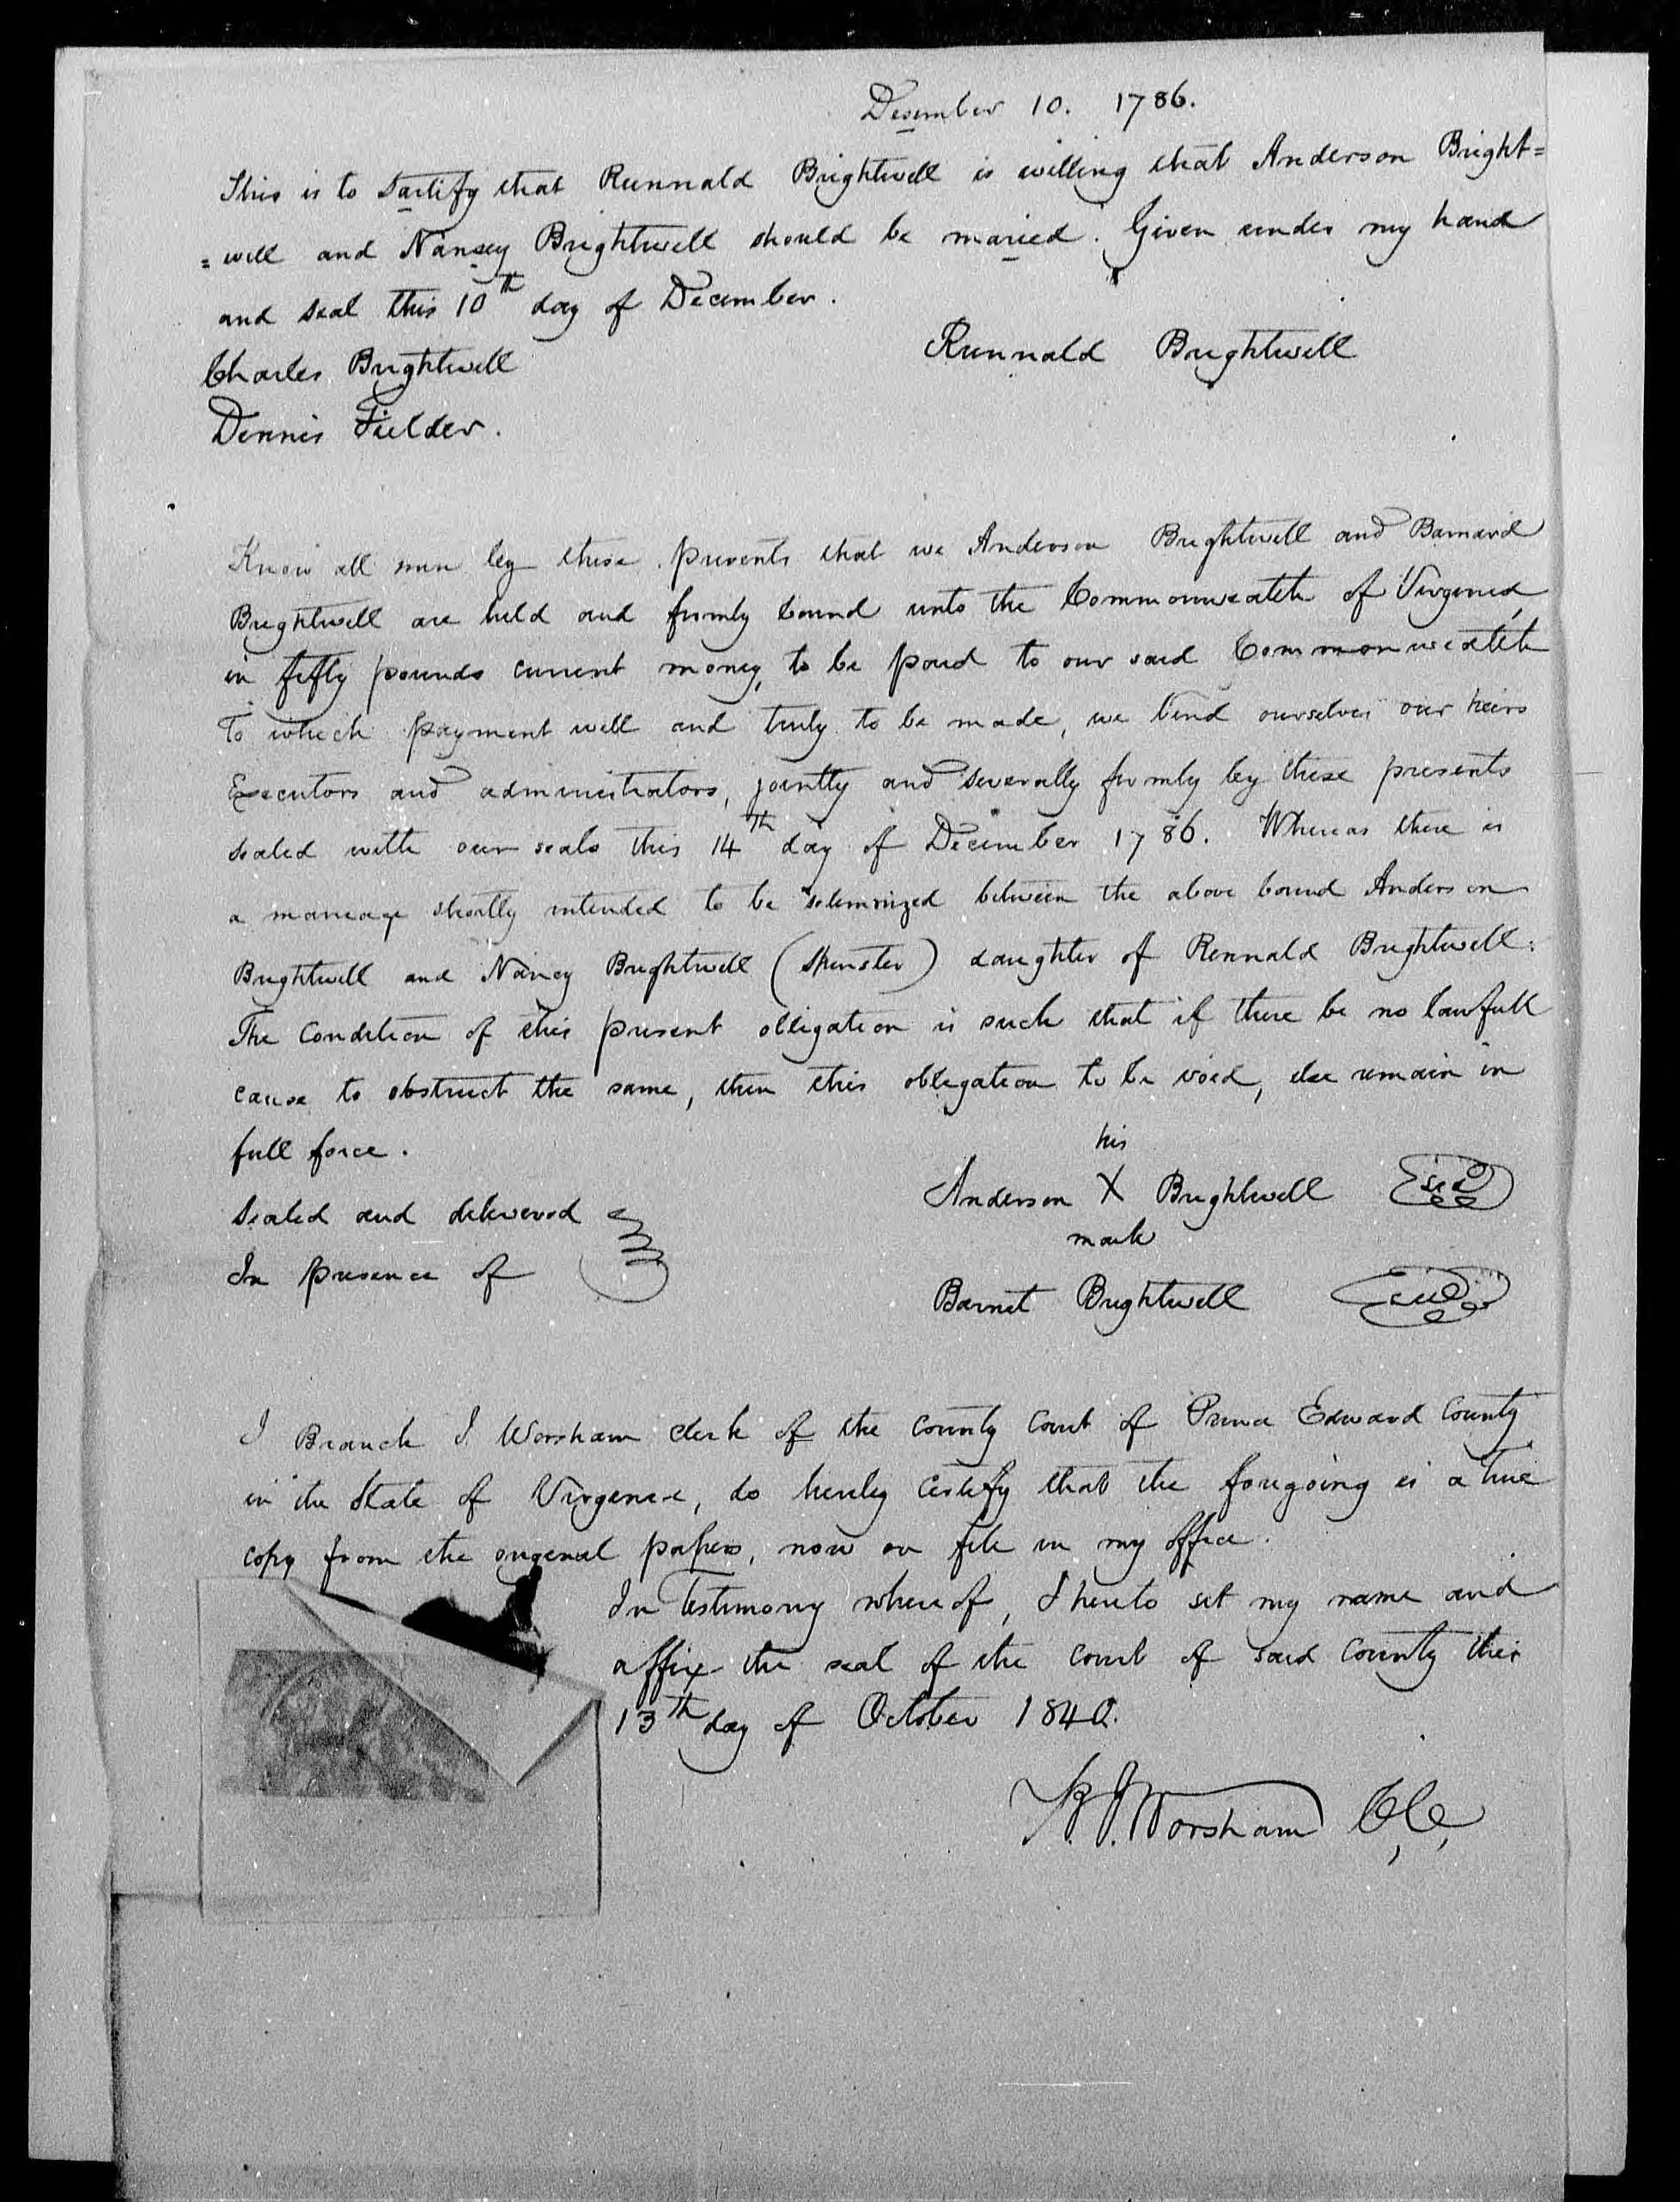 Desember 10. 1786.
This is to Sartify that Runnald Brightwell is willing that Anderson Bright=
=well and Nansey Brightwell should be maried. Given under my hand
and seal this 10th day of December.
Runnald Brightwell
Charles Brightwell
Dennis Fielder.
Know all men by these presents that we Anderson Brightwell and Barnard
Brightwell are held and firmly bound unto the Commonwealth of Virginia,
in fifty pounds current money, to be paid to our said Commonwealth
To which payment well and truly to be made, we bind ourselves our heirs
Executors and administrators, jointly and severally firmly by these presents
sealed with our seals this 14th day of December 1786. Whereas there is
a marriage shortly intended to be solemnized between the above bound Anderson
Brightwell and Nancy Brightwell (Spinster) daughter of Rennald Brightwell:
The Condition of this present obligation is such that if there be no lawfull
cause to obstruct the same, then this obligation to be void, else remain in
full force.
his
Anderson X Brightwell Seal
mark
Sealed and delivered
In presence of
Barnet Brightwell Seal
I Branch J. Worsham clerk of the County Court of Prince Edward County
in the State of Virginia, do hereby certify that the foregoing is a true
copy from the original papers, now on file in my office.
In Testimony whereof, I hereto set my name and
affix the seal of the Court of said County this
13th day of October 1840.
B. J. Worsham C,C,